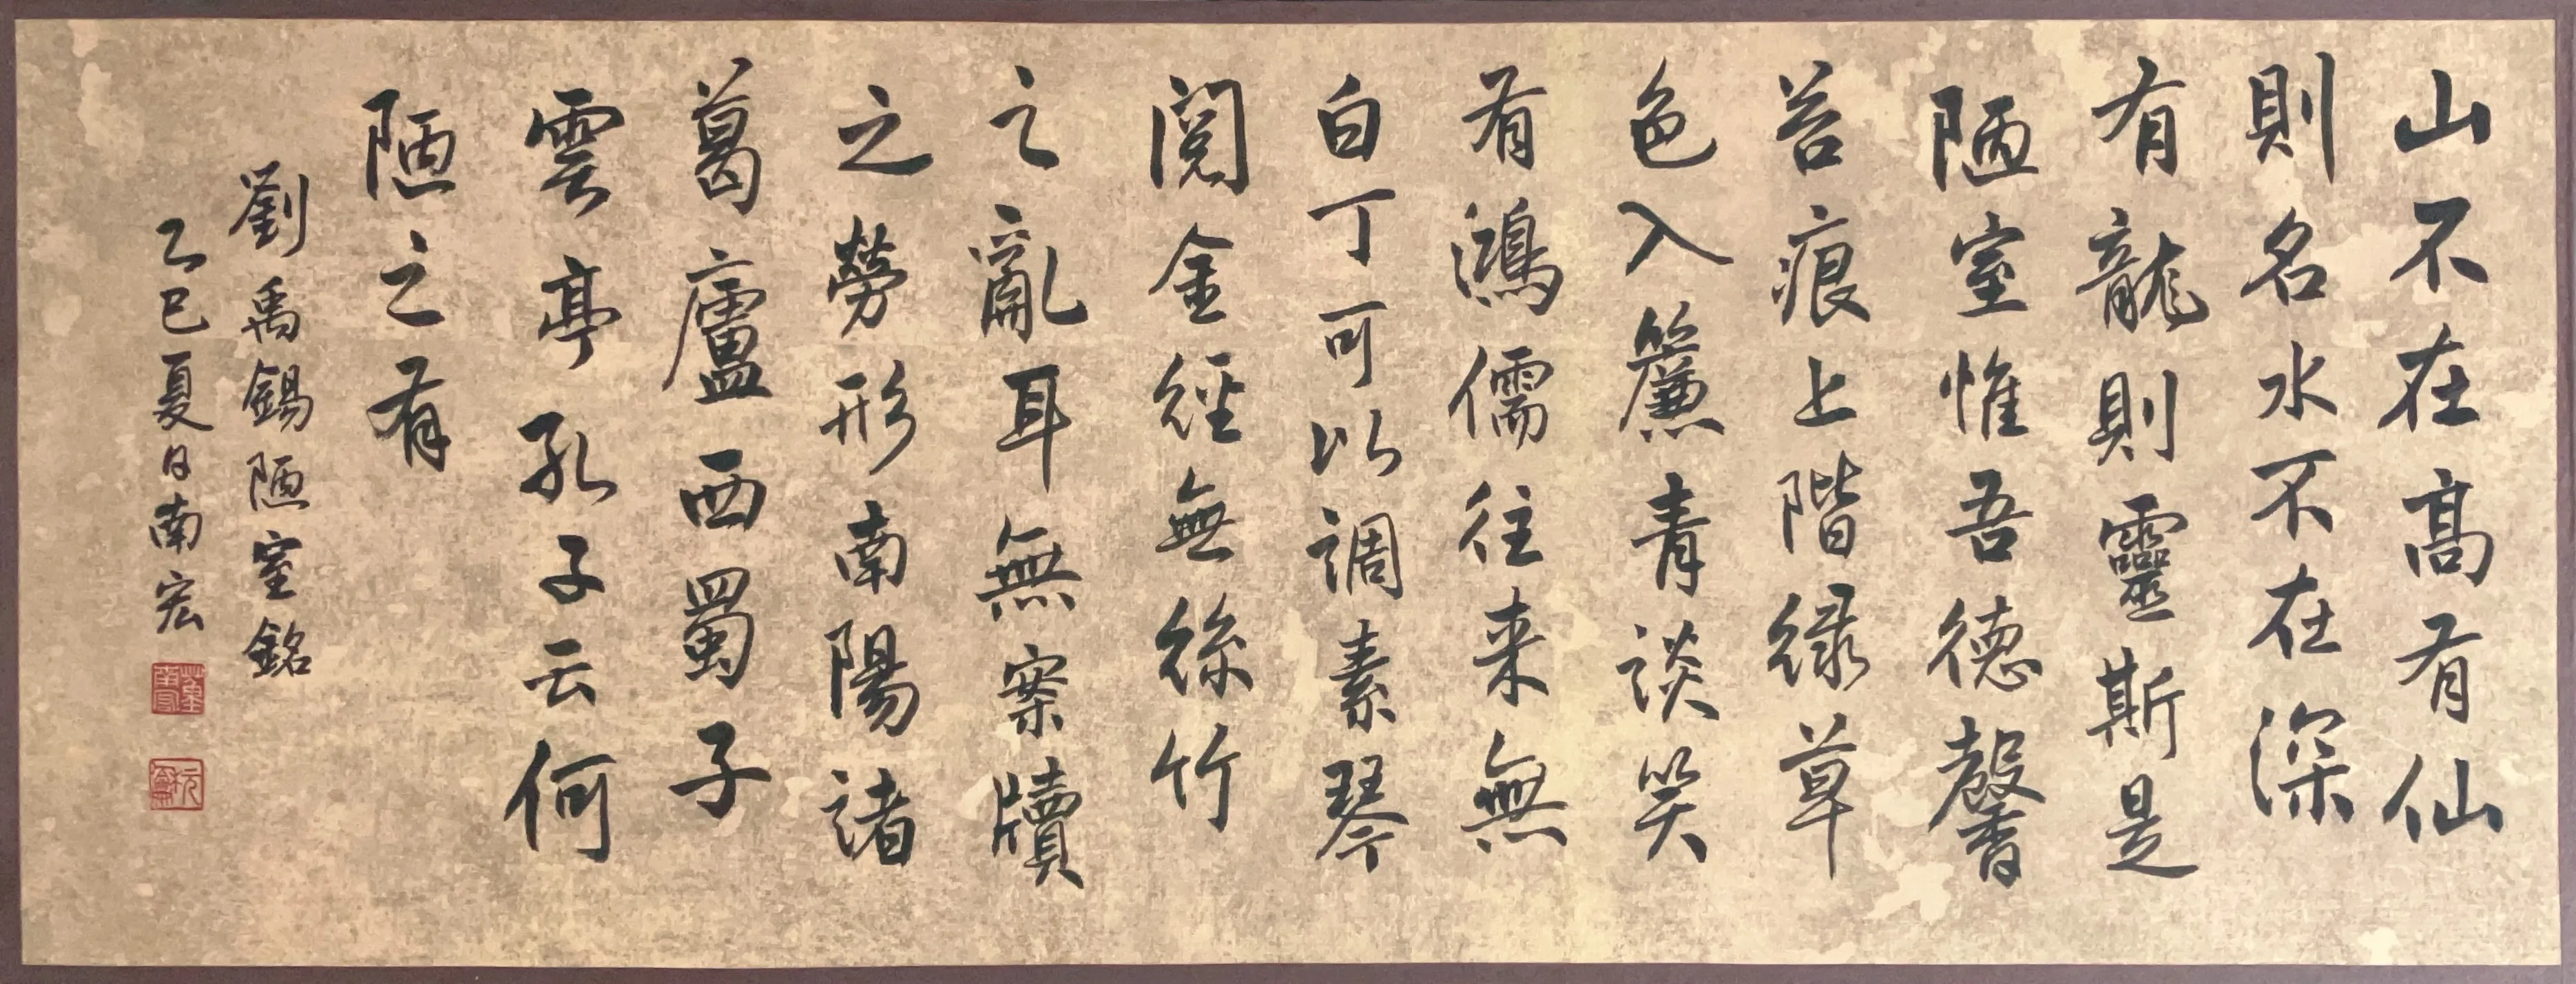 山不在高有仙
則名水不在深
有龍則靈斯是
陋室惟吾德馨
苔痕上階緑草
色入簾青談笑
有鴻儒往来無
白丁可以調素琴
閱金經無絲竹
之亂耳無案牘
之勞形南陽諸
葛廬西蜀子
雲亭孔子云何
陋之有
劉禹錫陋室銘
乙巳夏日南宏